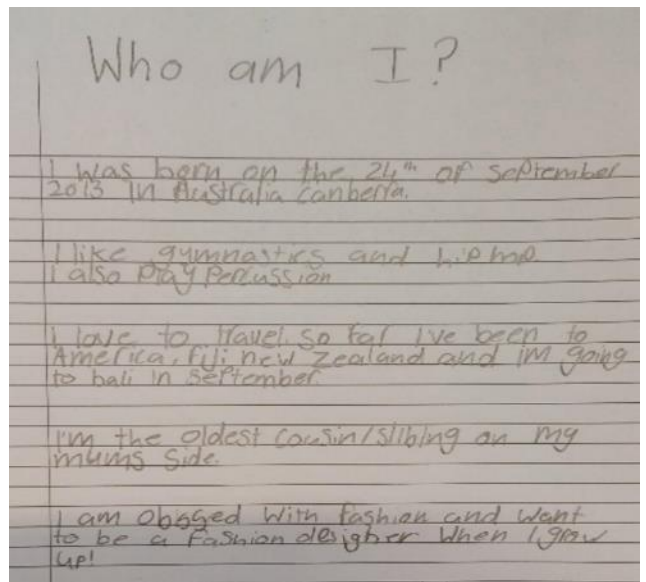 Who am I?
I was born on the 24th of September
2013 in Australia Canberra.
I like gymnastics and
I also play percussion
I love to travel. so far Ive been to
America, fiji new Zealand and im going
to bali in September.
I'm the oldest cousin/slibing on my
mums side.
I am obssed with fashion and want
to be a fashion designer when I grow
up!